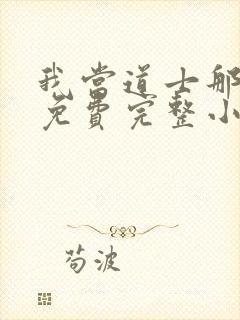 我当道士那
免费完整小
苟波